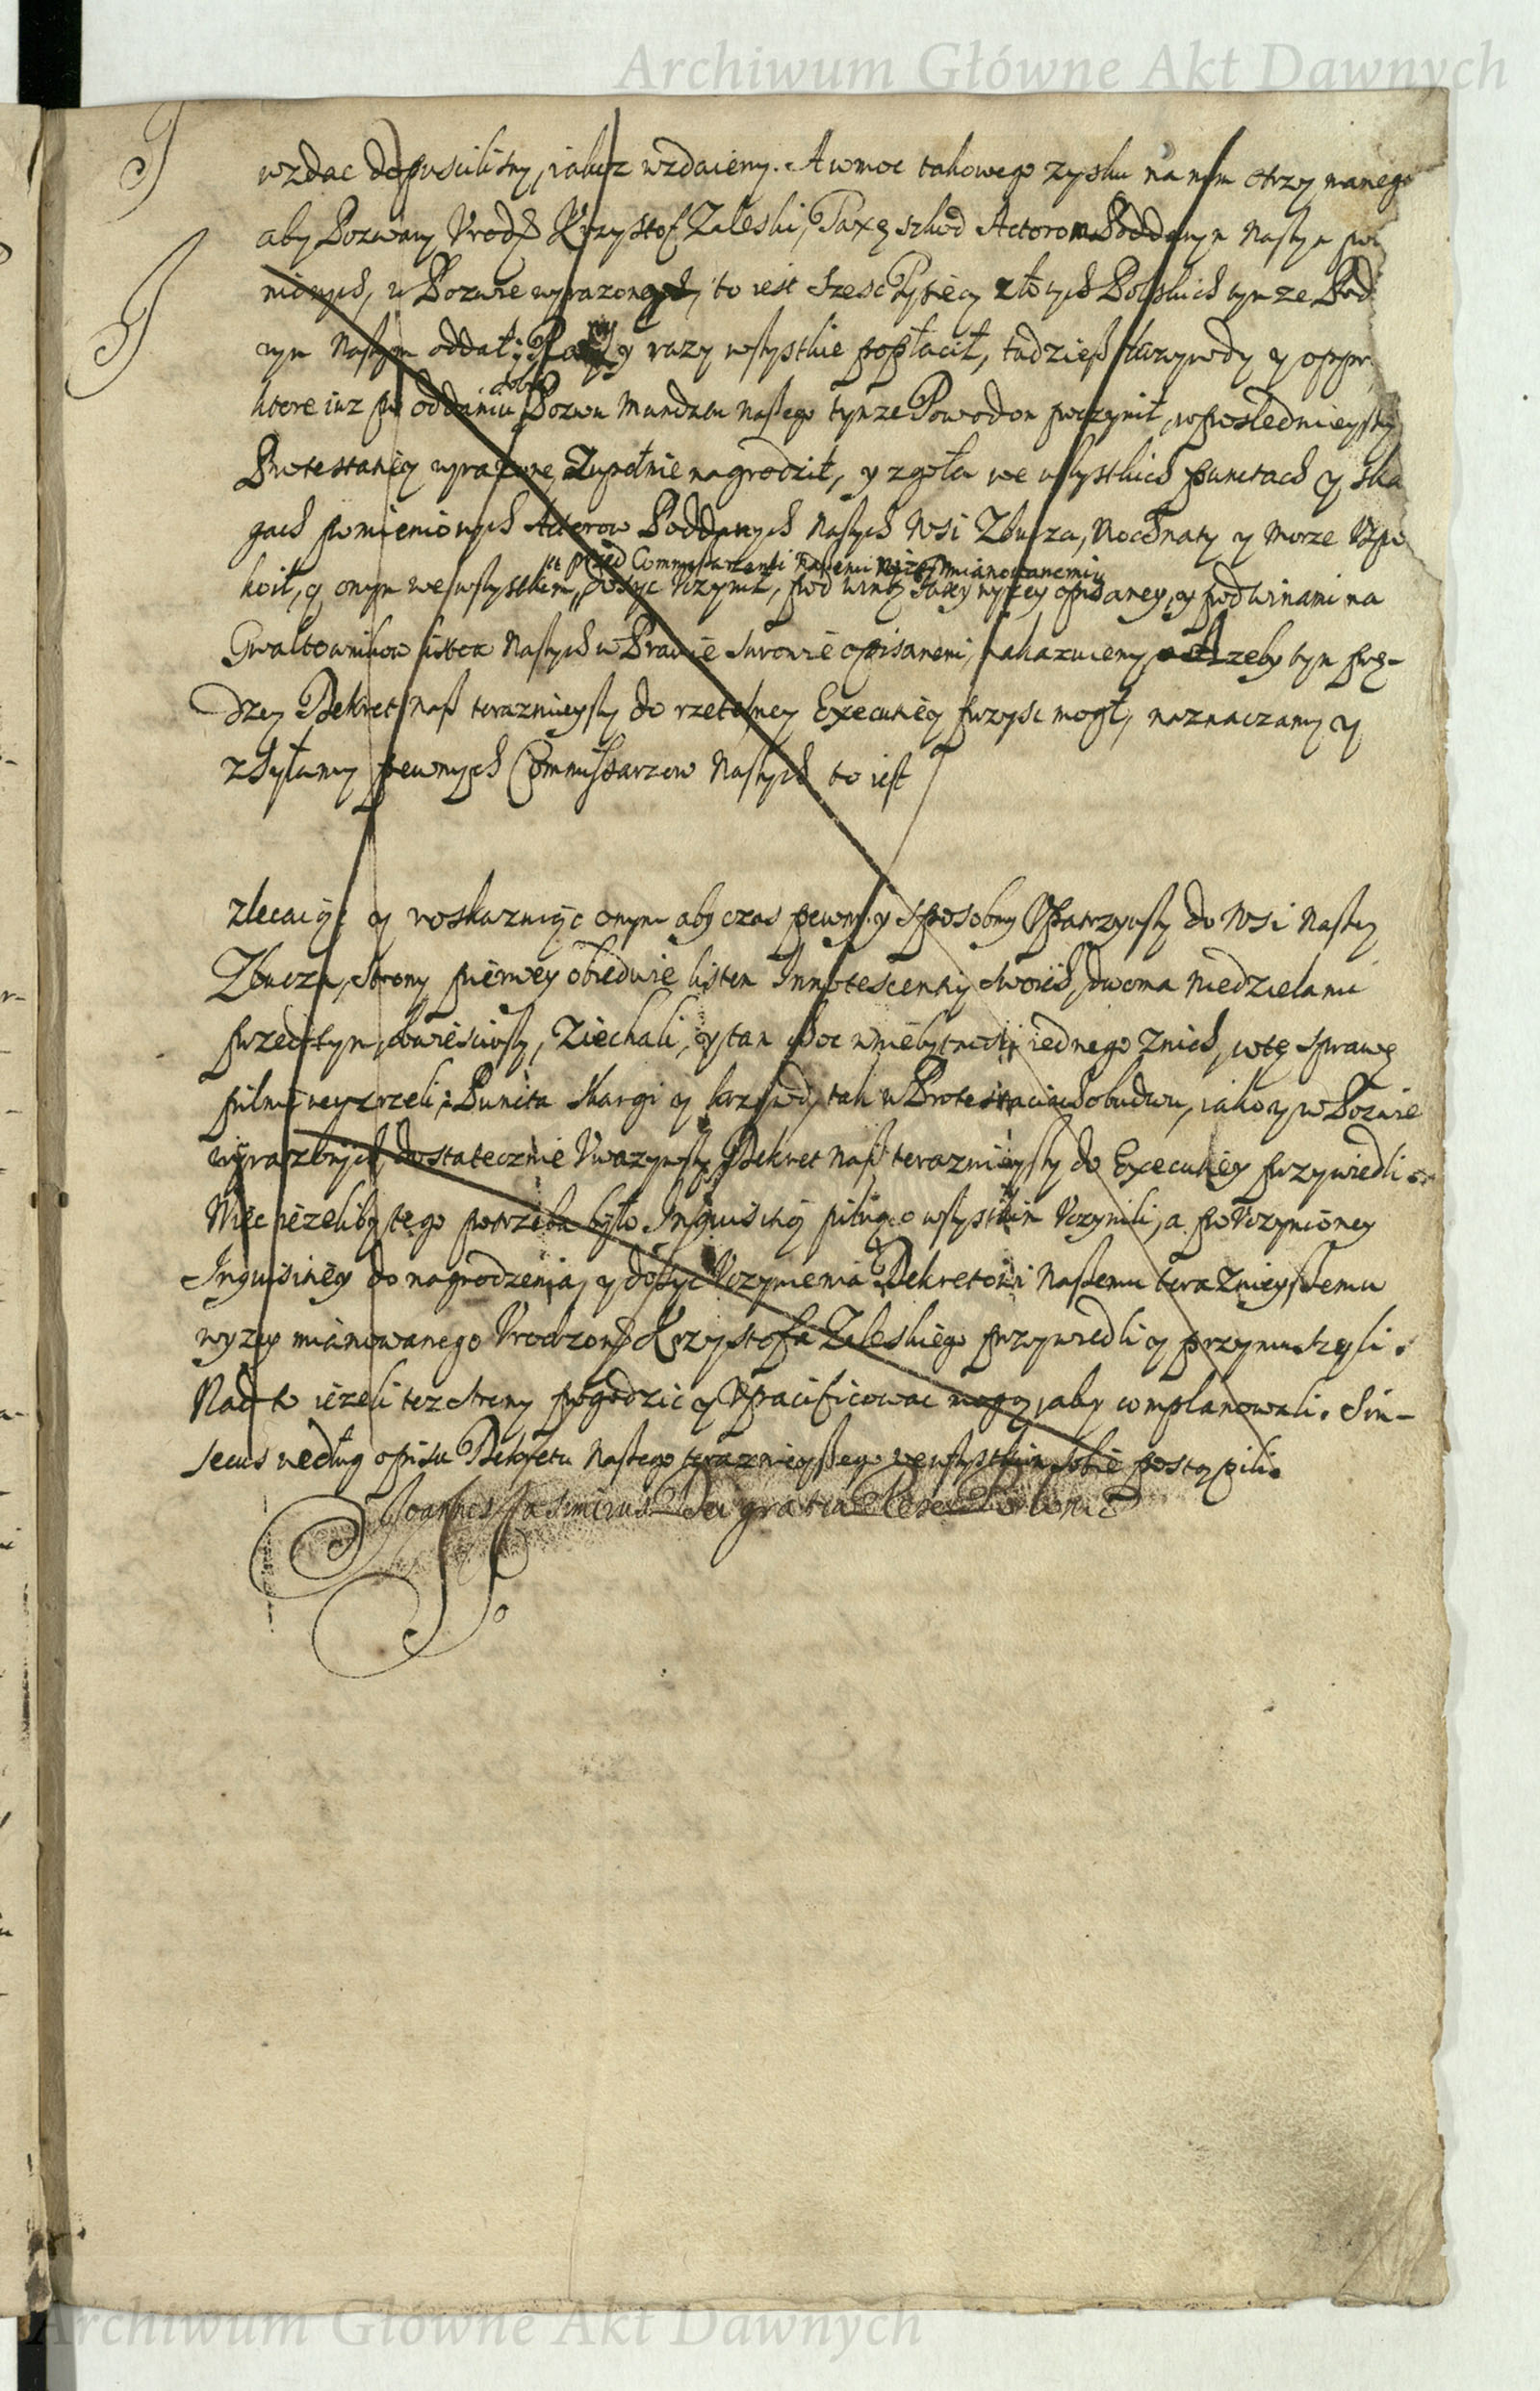 Archiwum Główne Akt Dawnych
wzdac dopuscilismy, iakosz wzdaiemy. A w moc takowego zysku na nim otrzymanego
aby Pozwany Urodz Krzysztof Zaleski, Taxę szkod Actorom Poddanym Naszym po
nionych, w Pozwie wyrazone, to iest szesc Tysięcy złotych Polskich tymze Pod
nym Naszym oddał; Rany y razy wszystkie popłacił, tudziesz krzywdy y oppr
ktore iuz po oddaniu dobr Pozwu Mandatu Naszego tymze Powodom poczynił, w posledniejszy
Protestaciey wyrazone, Zupełnie nagrodził, y zgoła we wszystkich punctach y ska
gach pomienionych Aktorow Poddanych Naszych Wsi Zbucza, Nocznaty y Morze Uspo
przed Commissarzami Naszemi nizey mianowanemi
koił, y onym we wszystkiem, dosyc Uczynił, pod winą Taxy wyzey opisaney, y pod winami na
Gwałtownikow listow Naszych w Prawie surowie opisanemi, nakazuiemy, zeby tym prę-
dzey Dekret Nasz terazniejszy do rzetelney Execuciey przysc mogł, naznaczamy y
zsyłamy pewnych Commissarzow Naszych to iest
zlecaiąc y roskazuiąc onym aby czas pewny y sposobny Upatrzywszy do Wsi Naszey
Zbucza, Strony pierwey obiedwie listem Innotescentiy swoich, dwoma Niedzielami
przed tym, obwiesciwszy, Ziechali, y tam choc w niebytnosci iednego z nich, w tę sprawę
pilnie weyzrzeli; Puncta skargi y krzywdy tak w Protestaciach obudwu, iako y w Pozwie
wyrazonych, dostatecznie Uwazywszy Dekret Nasz terazniejszy do Execuciey przywiedli.
Więc iezeliby tego potrzeba było Inquisicią pilną o wszystkim Uczynili, a po Uczynioney
Inquisiciey do nagrodzenia, y dosyc Uczynienia Dekretowi Naszemu terazniejszemu
wyzey mianowanego Urodzone Krzysztofa Zaleskiego przywiedli y przymuszyli.
Nad to iezeli tez strony pogodzic y Upacificowac mogą, aby complanowali. Sin-
secus według opisu Dekretu Naszego terazniejszego we wszystkim sobie postąpili.
Joannes Casimirus Dei gratia Rex Poloniæ
Archiwum Główne Akt Dawnych